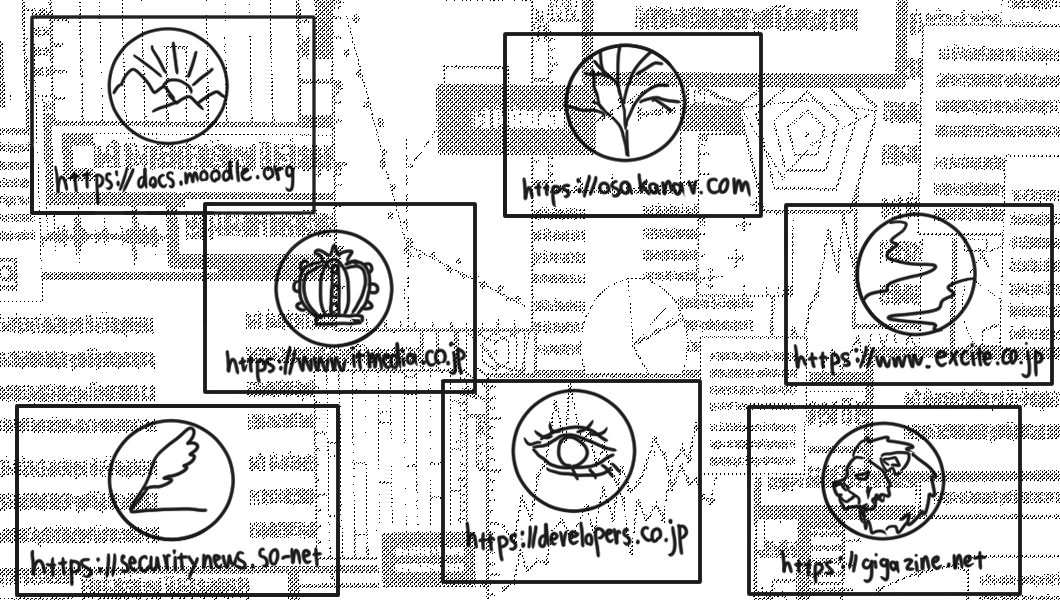 https://docs.moodle.org
https://asa.kanav.com
https://www.itmedia.co.jp
https://www.excite.co.jp
https://securitynews.so-net
https://developers.co.jp
https://gigazine.net